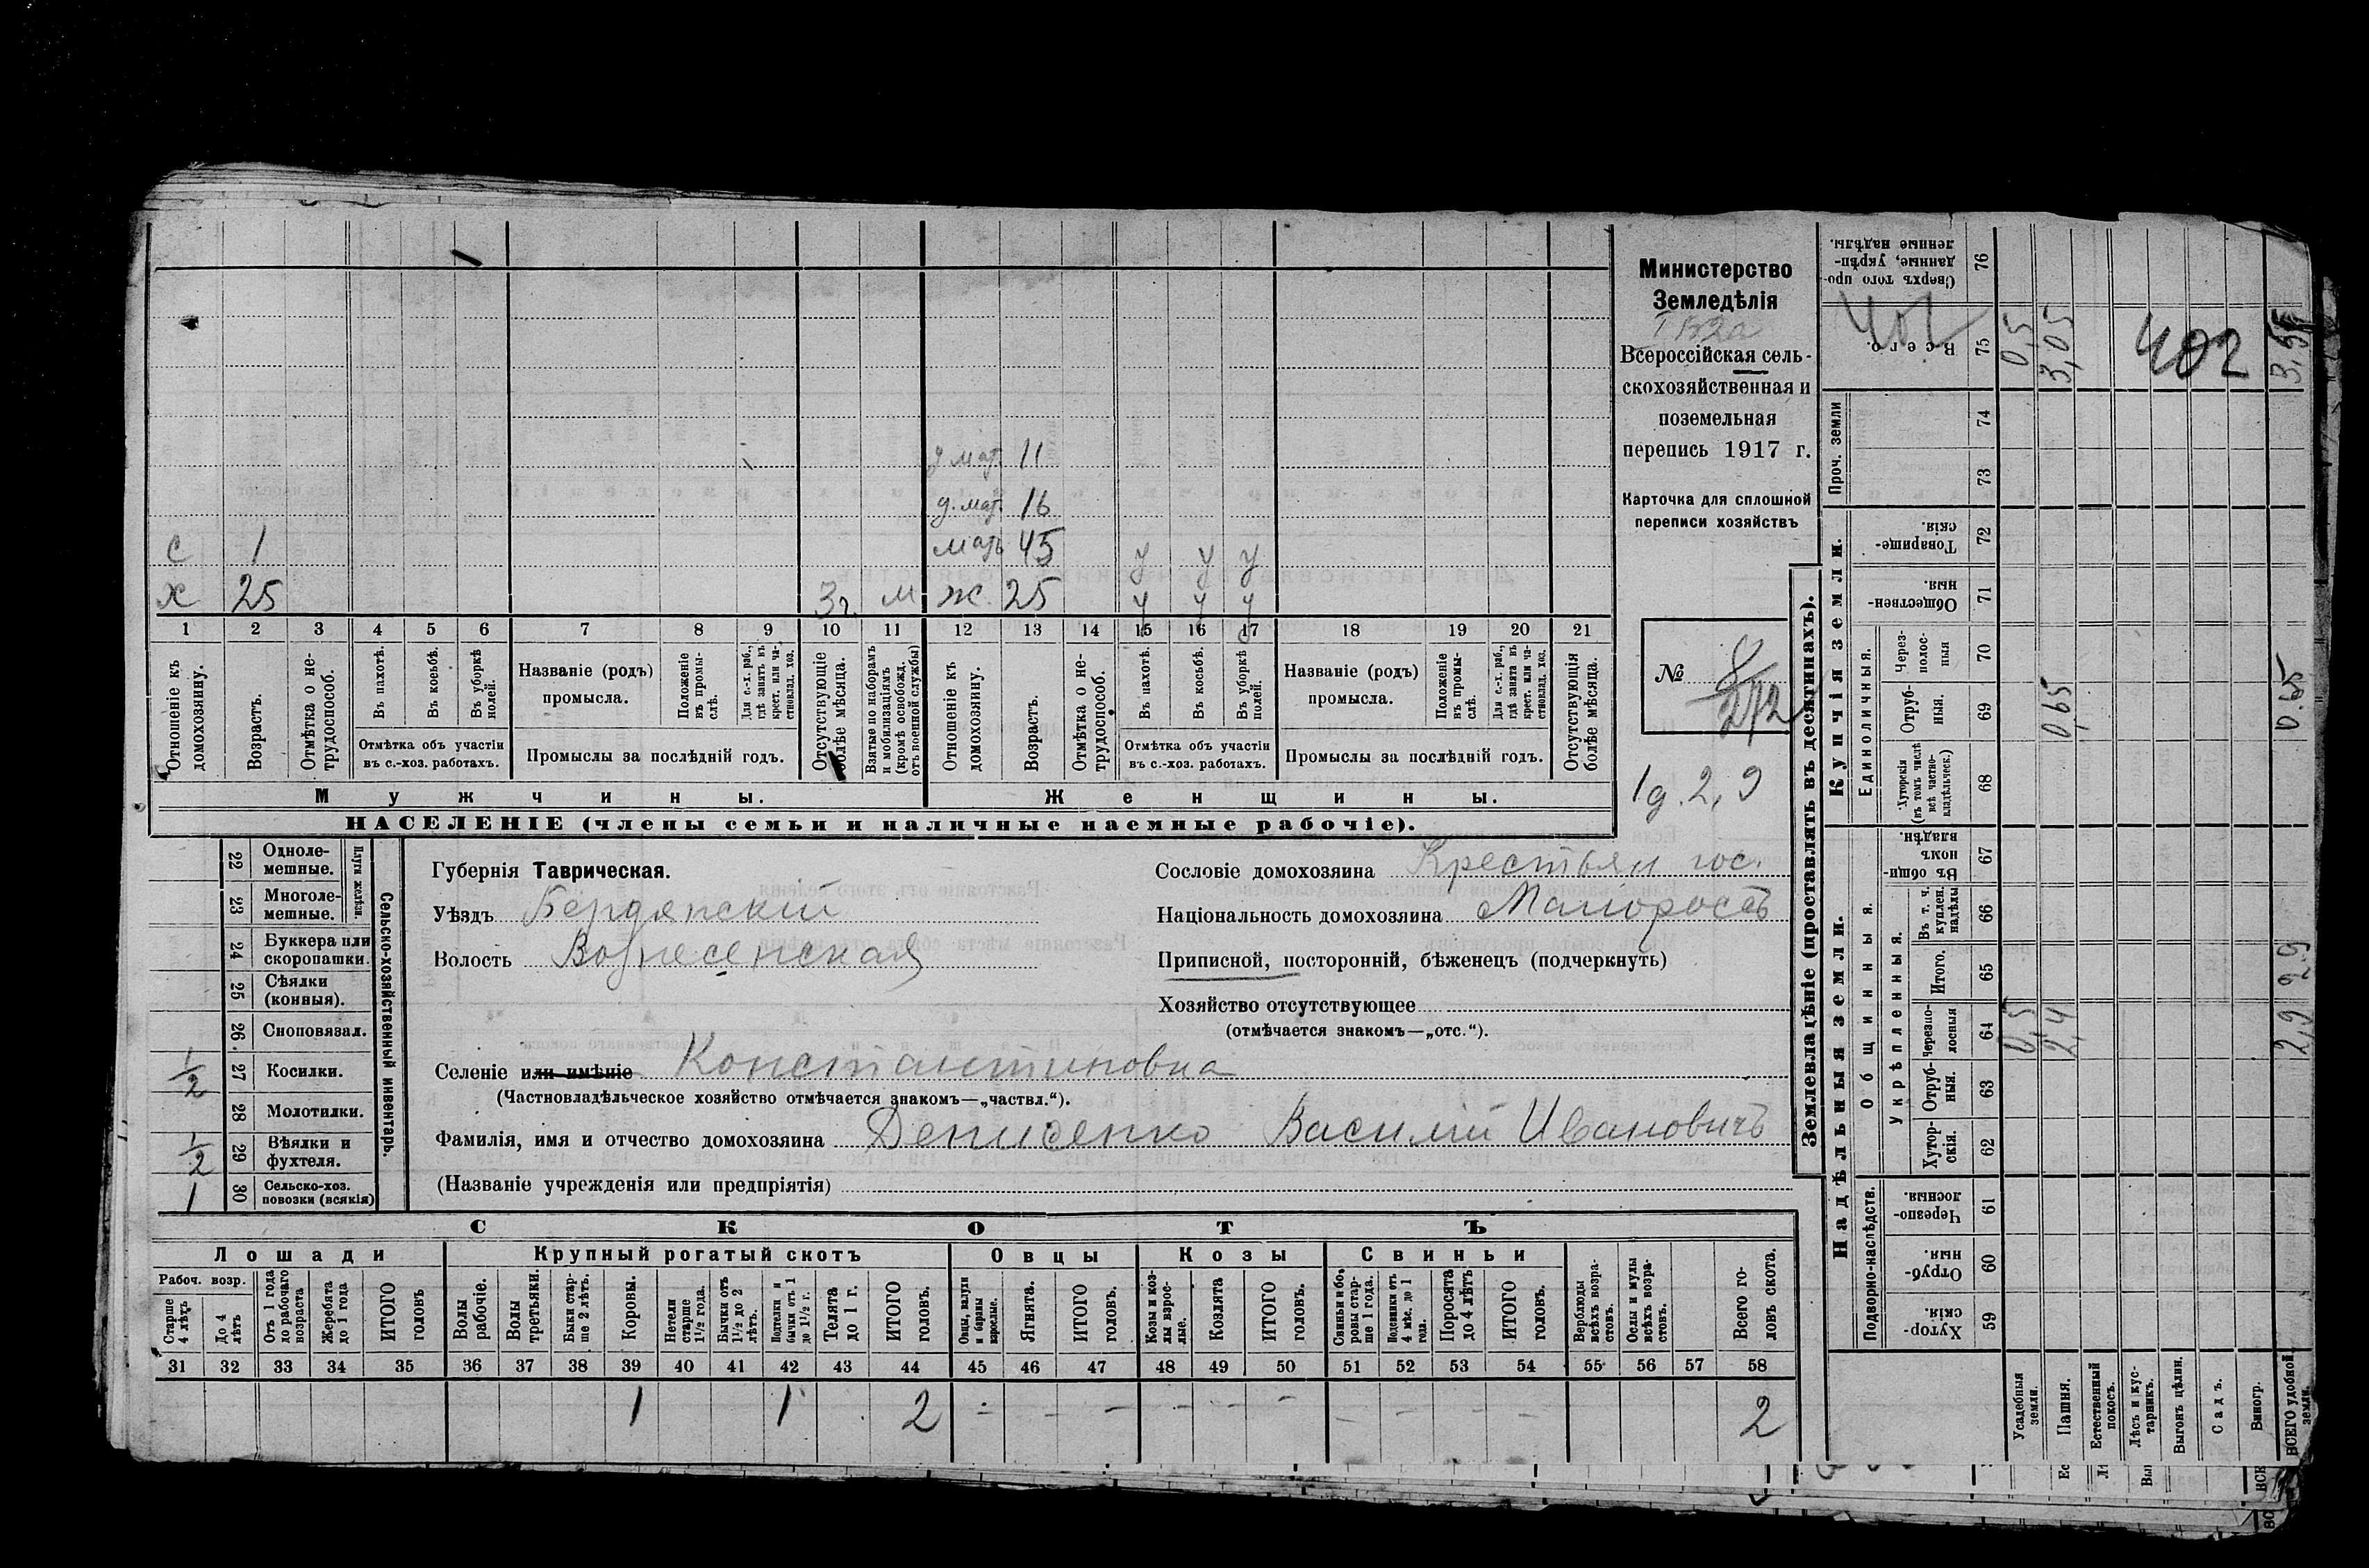 д. мат. 11
д. мат. 16
с 1 мать 45 у у у
х 25 3 г. м ж. 25 у у у
1 2 3 4 5 6 7 8 9 10 11 12 13 14 15 16 17 18 19 20 21
Отношеніе къ домохозяину.
Возрастъ.
Отмѣтка о нетрудоспособ.
Въ пахотѣ.
Въ косьбѣ.
Въ уборкѣ полей.
Отмѣтка объ участіи
въ с.-хоз. работахъ.
Названіе (родъ)
промысла.
Положеніе въ промыслѣ.
Для с.-х. раб., гдѣ занятъ въ крест. или частновлад. хоз.
Промыслы за послѣдній годъ.
Отсутствующіе болѣе мѣсяца.
Взятые по наборамъ и мобилизаціямъ (кромѣ освобожд. отъ военной службы)
Отношеніе къ домохозяину.
Возрастъ.
Отмѣтка о нетрудоспособ.
Въ пахотѣ.
Въ косьбѣ.
Въ уборкѣ полей.
Отмѣтка объ участіи
въ с.-хоз. работахъ.
Названіе (родъ)
промысла.
Положеніе въ промыслѣ.
Для с.-х. раб., гдѣ занята въ крест. или частновлад. хоз.
Промыслы за послѣдній годъ.
Отсутствующія болѣе мѣсяца.
Мужчины. Женщины.
НАСЕЛЕНІЕ (члены семьи и наличные наемные рабочіе).
Министерство
Земледѣлія
Всероссійская сель-
скохозяйственная и
поземельная
перепись 1917 г.
Карточка для сплошной
переписи хозяйствъ
№ 8
272
1 д. 2,9
Сельско-хозяйственный инвентарь.
Плуги желѣзн.
22 Одноле-
мешные.
23 Многоле-
мешные.
24 Буккера или
скоропашки.
25 Сѣялки
(конныя).
26 Сноповязал.
1/2 27 Косилки.
28 Молотилки.
1/2 29 Вѣялки и
фухтеля.
1 30 Сельско-хоз.
повозки (всякія)
Губернія Таврическая.
Уѣздъ Бердянскій
Волость Вознесенская
Сословіе домохозяина Крестьян гос.
Національность домохозяина Малороссъ
Приписной, посторонній, бѣженецъ (подчеркнуть)
Хозяйство отсутствующее
(отмѣчается знакомъ—„отс.“).
Селеніе или имѣніе Константиновка
(Частновладѣльческое хозяйство отмѣчается знакомъ—„частвл.“).
Фамилія, имя и отчество домохозяина Денисенко Василій Ивановичъ
(Названіе учрежденія или предпріятія)
СКОТЪ
Лошади Крупный рогатый скотъ Овцы Козы Свиньи
Рабоч. возр.
Старше 4 лѣтъ
До 4 лѣтъ
Отъ 1 года до рабочаго возраста
Жеребята до 1 года
ИТОГО головъ
Волы рабочіе.
Волы третьяки.
Быки старше 2 лѣтъ.
Коровы.
Нетели старше 1½ года.
Бычки отъ 1½ до 2 лѣтъ.
Подтелки и бычки отъ 1 до 1½ г.
Телята до 1 г.
ИТОГО головъ.
Овцы, валухи и бараны взрослые.
Ягнята.
ИТОГО головъ.
Козы и козлы взрослые.
Козлята
ИТОГО головъ.
Свиньи и боровы старше 1 года.
Подсвинки отъ 4 мѣс. до 1 года.
Поросята до 4 лѣтъ
ИТОГО головъ.
Верблюды всѣхъ возрастовъ.
Ослы и мулы всѣхъ возрастовъ.
Всего головъ скота.
31 32 33 34 35 36 37 38 39 40 41 42 43 44 45 46 47 48 49 50 51 52 53 54 55 56 57 58
1 1 2 - - - - - - - - - - 2
Землевладѣніе (проставлять въ десятинахъ).
Надѣльныя земли. Купчія земли. Проч. земли
Подворно-наслѣдств. Общинныя. Единоличныя.
Укрѣпленныя.
Хуторскія. 59
Отрубныя. 60
Черезполосныя. 61
Хуторскія. 62
Отрубныя. 63
Черезполосныя 64
Итого. 65
Въ т. ч. куплен. надѣлы 66
Въ общинномъ владѣн. 67
Хуторскія (въ томъ числѣ всѣ частновладѣльческ.) 68
Отрубныя. 69
Черезполосныя 70
Общественныя. 71
Товарищескія. 72
73
74
Всего. 75
Сверхъ того проданные, укрѣпленные надѣлы. 76
Усадебныя земли. 0,5 0,5
Пашня. 2,4 0,65 3,05
Естественный покосъ.
Лѣсъ и кустарникъ.
Выгонъ цѣлин.
Садъ.
Виногр.
ВСЕГО удобной земли. 2,9 2,9 0.65 3,55
402
402